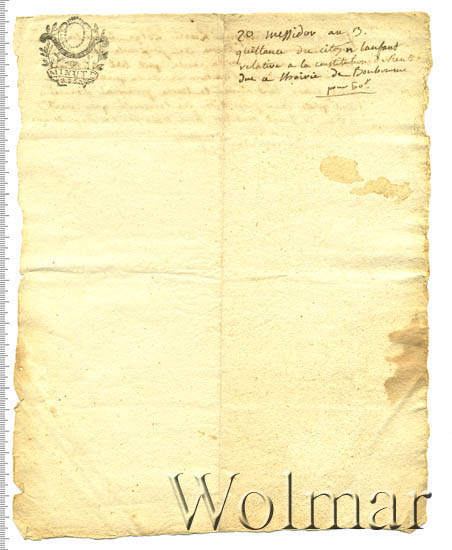 MINUTE
20 messidor an 3.
quittance du citoyen Lanfant
relative à la constitution de rente
due à Mairie de Bourbonne
pour 60#
Wolmar